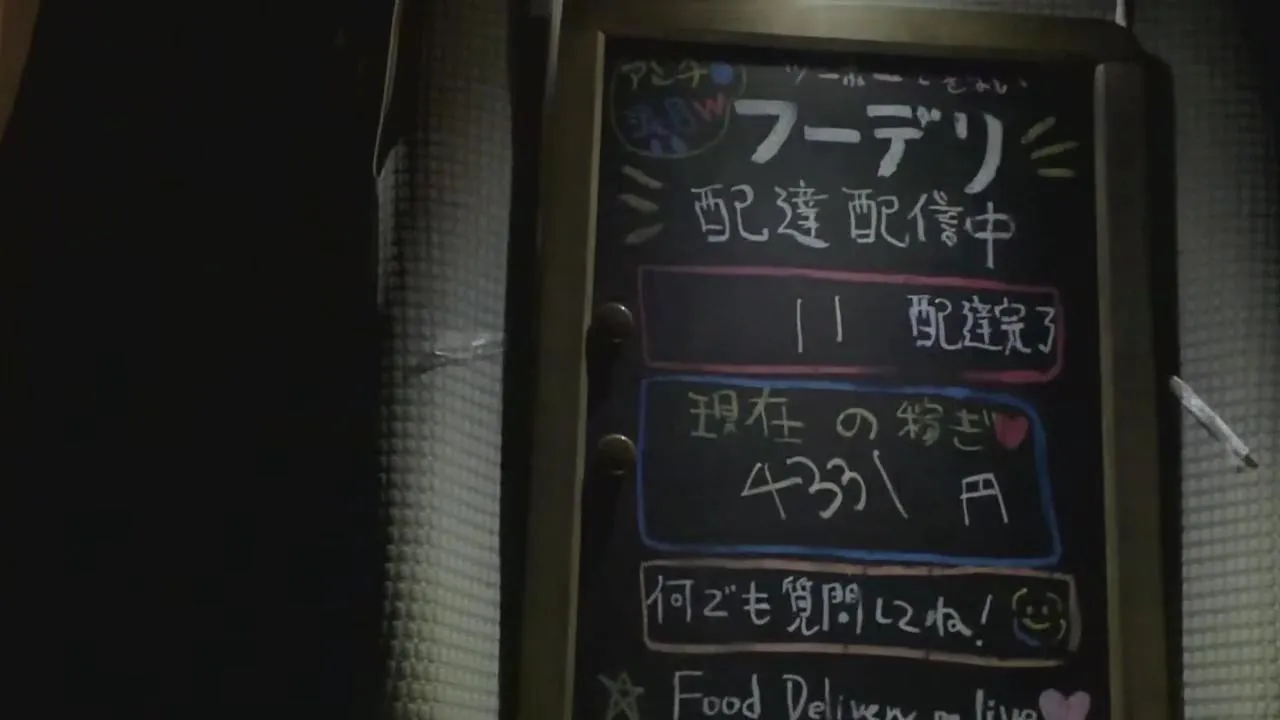 アンチ
フーデリ
配達配信中
11 配達完了
現在の稼ぎ
4331円
何でも質問してね!
Food Delivery live